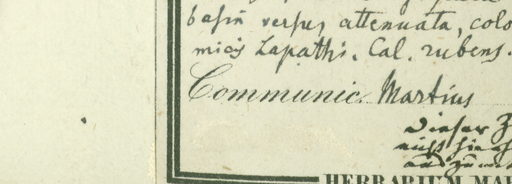 basin versus attenuata, colo
micis Lapathi. Cal. rubens.
Communic. Martius
Dieser Z
nicht
HERBARIUM MAR